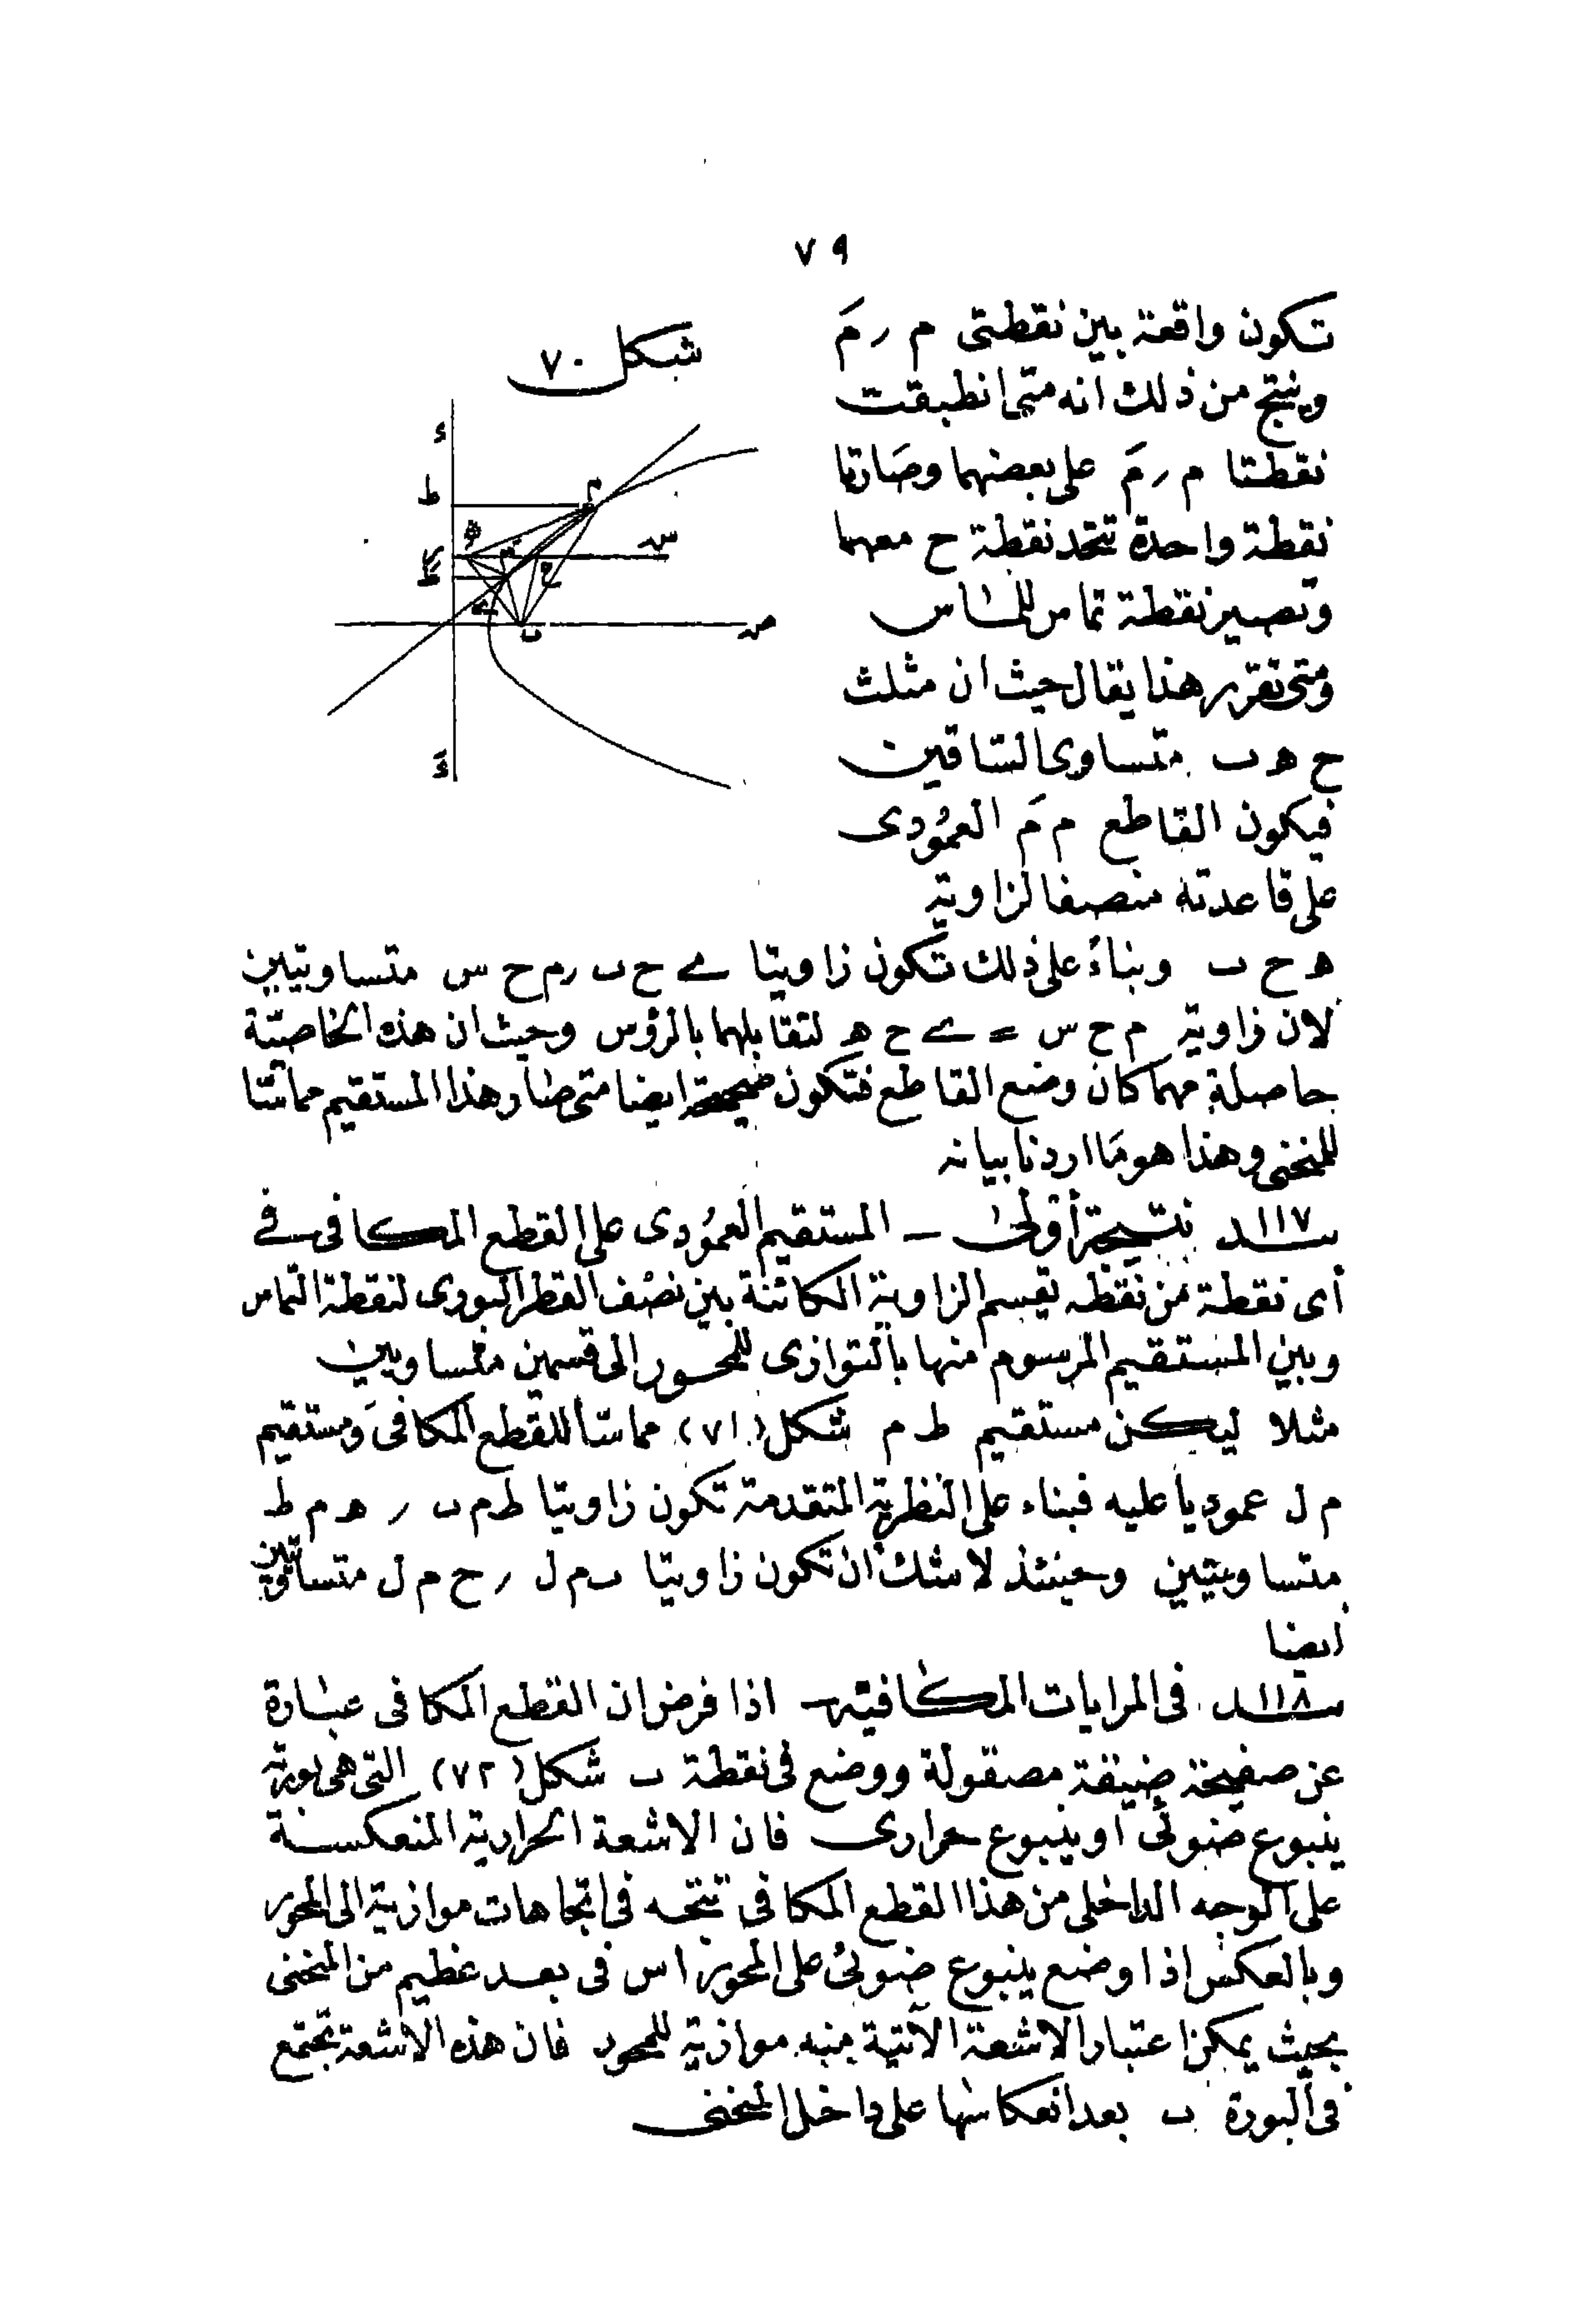 ٧٩
تكون واقعة بين نقطتى م ر مَ
وينتج من ذلك انه متى انطبقت
نقطتا م ر مَ على بعضهما وصارتا
نقطة واحدة تتحد نقطة ح معهما
وتصير نقطة تماس للماس
ومتى تقرر هذا يقال حيث ان مثلث
ح ه ب متساوى الساقين
فيكون القاطع م مَ العمودى
على قاعدته منصفا لزاوية
شكل ٧٠
ء
ط
م
ه
مَ
س
ح
ب
صـ
ءَ
ه ح ب وبناءً على ذلك تكون زاويتا ے ح ب ر م ح س متساويتين
لان زاوية م ح س = ے ح ه لتقابلهما بالرؤس وحيث ان هذه الخاصيّة
حاصلة مهما كان وضع القاطع فتكون صحيحة ايضا متى صار هذا المستقيم مماسّا
للمنحنى وهذا هو ما اردنا بيانه
١١٧ نتيجة أولى – المستقيم العمودى على القطع المكافى فى
أى نقطة من نقطه يقسم الزاوية الكائنة بين نصف القطر البورى لنقطة التماس
وبين المستقيم المرسوم منها بالتوازى للمحور الى قسمين متساويين
مثلا ليكن مستقيم ط م شكل (٧١) مماسّا للقطع المكافى ومستقيم
م ل عموديا عليه فبناء على النظرية المتقدمة تكون زاويتا ط م ب ر ه م ط
متساويتين وحينئذ لاشك ان تكون زاويتا ب م ل ر ح م ل متساويتين
ايضا
١١٨ فى المرايات المكافية – اذا فرض ان القطع المكافى عبارة
عن صفيحة ضيقة مصقولة ووضع فى نقطة ب شكل (٧٢) التى هى بورة
ينبوع ضوئى او ينبوع حرارى فان الاشعة الحرارية المنعكسة
على الوجه الداخلى من هذا القطع المكافى تتجه فى اتجاهات موازية الى المحور
وبالعكس اذا وضع ينبوع ضوئى على المحور ا س فى بعد عظيم من المنحنى
بحيث يمكن اعتبار الاشعة الآتية منه موازية للمحور فان هذه الاشعة تجتمع
فى البورة ب بعد انعكاسها على داخل المنحنى